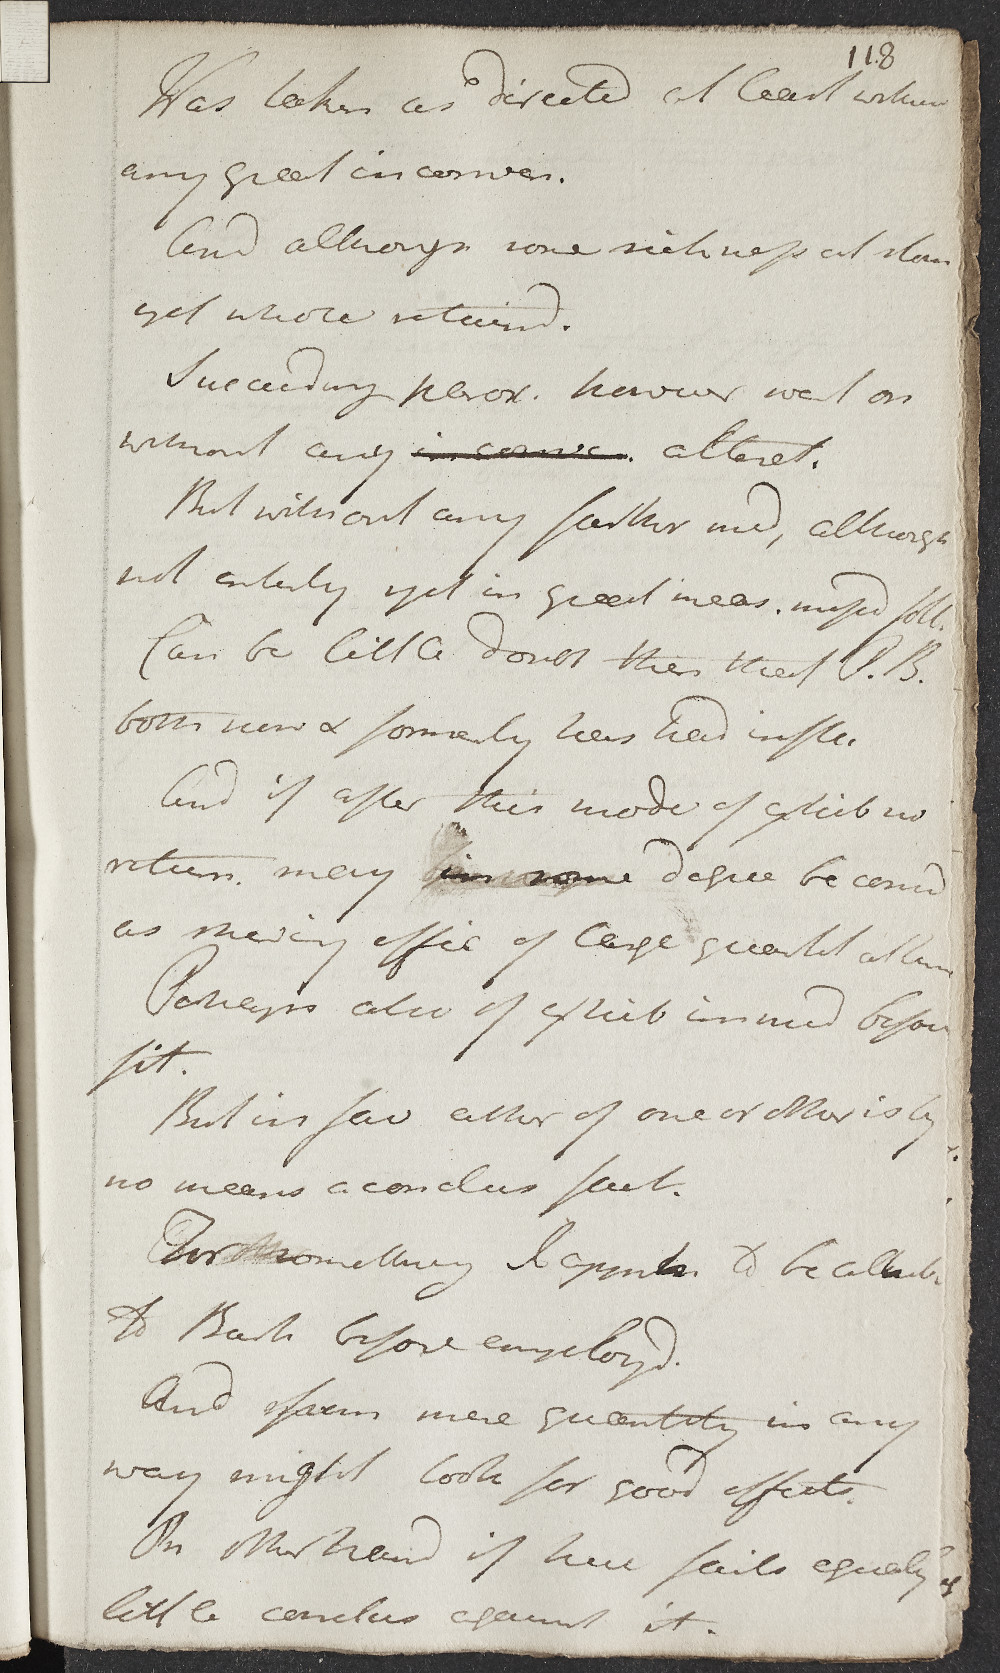 118
Was taken as directed at least without
any great inconven.
And although some sickness at stom
yet whole retaind.
Succeeding parox. however went on
without any inconven. alterat.
But without any farther med, although
not entirely yet in great meas. missd foll.
Can be little doubt then that P.B.
both now & formerly has had influ.
And if after this mode of exhib no
return. may in some degree be consid
as shewing effic of large quantit at
Perhaps also of exhib immed before
fit.
But in fav either of one or other is by
no means a conclus fact.
For something I appreh to be attrib
to Bark before employd.
And from mere quantity in any
way might look for good effects.
On other hand if here fails equally as
little conclus against it.